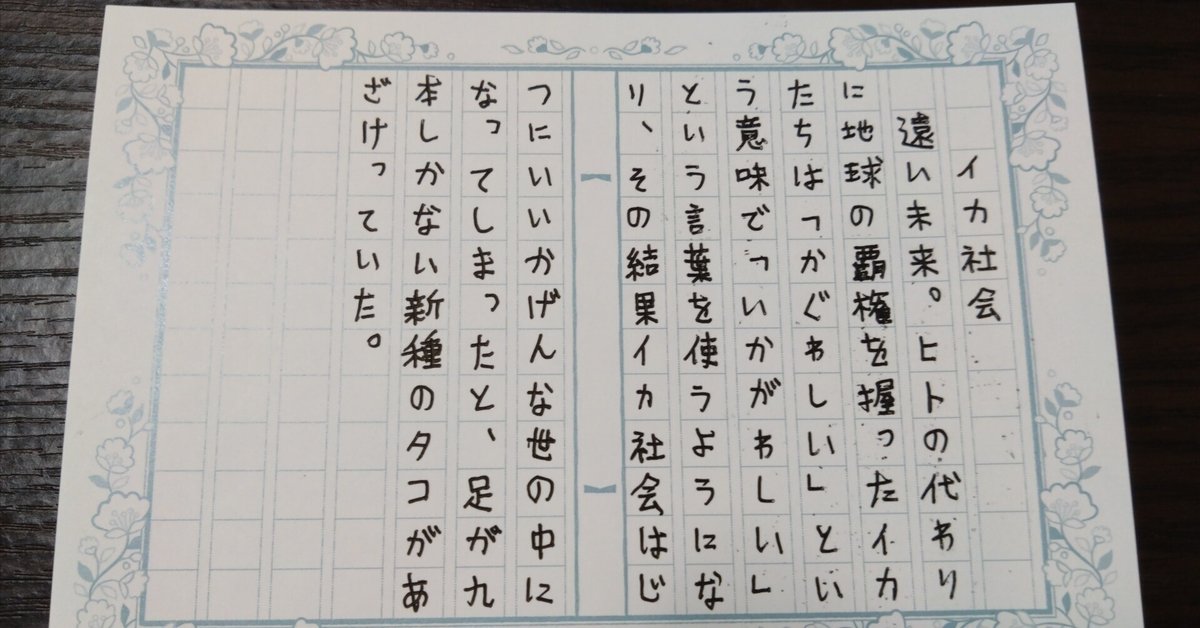 イカ社会
遠い未来。ヒトの代わり
に地球の覇権を握ったイカ
たちは「かぐわしい」とい
う意味で「いかがわしい」
という言葉を使うようにな
り、その結果イカ社会はじ
つにいいかげんな世の中に
なってしまったと、足が九
本しかない新種のタコがあ
ざけっていた。